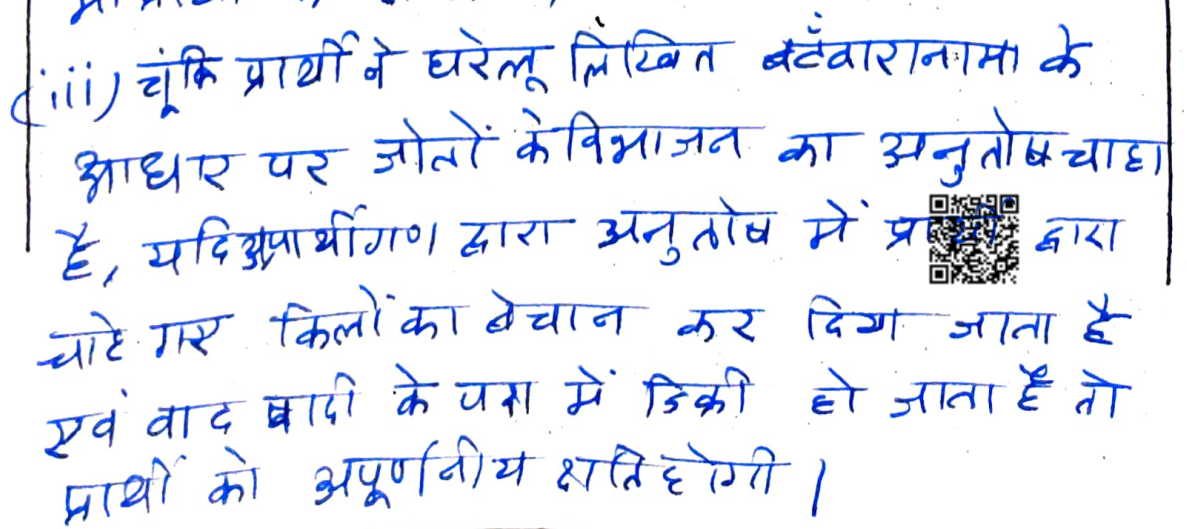 (iii) चूंकि प्रार्थी ने घरेलू लिखित बटँवारानामा के
आधार पर जोतों के विभाजन का अनुतोष चाहा
है, यदि अप्रार्थीगण द्वारा अनुतोष में द्वारा
चाहे गए किलों का बेचान कर दिया जाता है
एवं वाद वादी के पक्ष में डिक्री हो जाता है तो
प्रार्थी को अपूर्णनीय क्षति होगी।